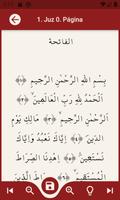 1. Juz 0. Página
الفاتحة
بِسْمِ اللَّهِ الرَّحْمَٰنِ الرَّحِيمِ
الْحَمْدُ لِلَّهِ رَبِّ الْعَالَمِينَ
الرَّحْمَٰنِ الرَّحِيمِ مَالِكِ يَوْمِ
الدِّينِ إِيَّاكَ نَعْبُدُ وَإِيَّاكَ
نَسْتَعِينُ اهْدِنَا الصِّرَاطَ